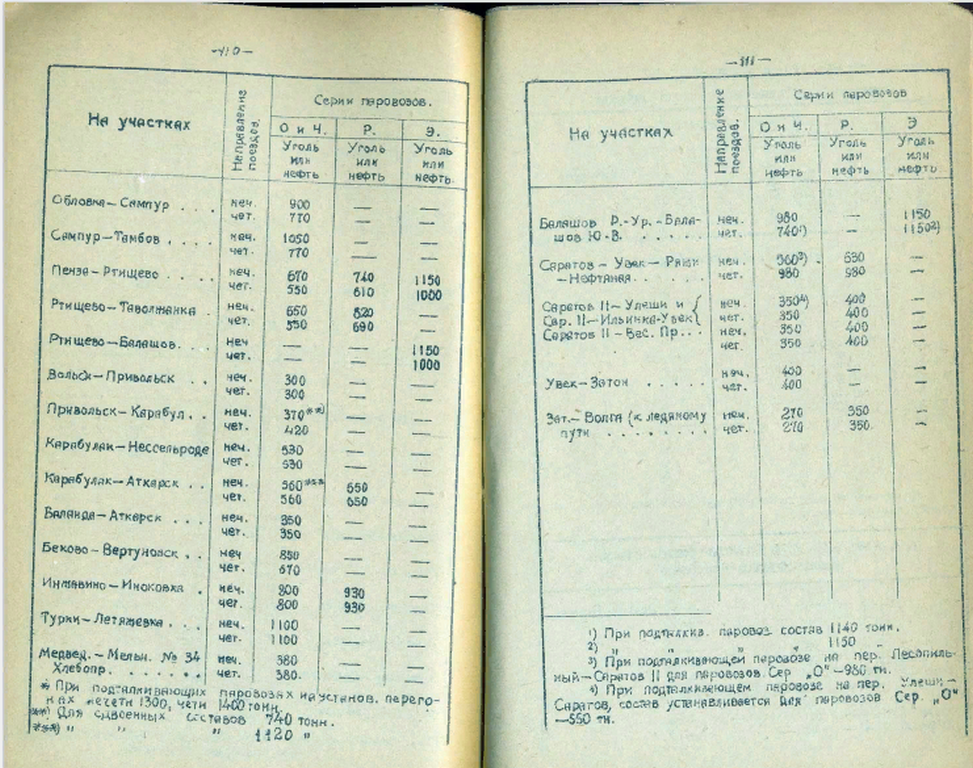 —110—
На участках
Направление поездов.
Серии паровозов.
О и Ч. Р. Э.
Уголь Уголь Уголь
или или или
нефть нефть нефть.
Обловка—Сампур . . . неч. 900 — —
чет. 770 — —
Сампур—Тамбов . . . . неч. 1050 — —
чет. 770 — —
Пенза—Ртищево . . . . неч. 670 740 1150
чет. 550 610 1000
Ртищево—Таволжанка . неч. 650 820 —
чет. 550 690 —
Ртищево—Балашов. . . неч — — 1150
чет. — — 1000
Вольск—Привольск . . неч. 300 — —
чет. 300 — —
Привольск—Карабул . . неч. 370**) — —
чет. 420 — —
Карабулак—Нессельроде неч. 530 — —
чет. 530 — —
Карабулак—Аткарск . . неч. 560*** 650 —
чет. 560 650 —
Баланда—Аткарск . . . неч. 350 — —
чет. 350 — —
Беково—Вертуновск . . неч 850 — —
чет. 670 — —
Инжавино—Иноковка . неч. 800 930 —
чет. 800 930 —
Турки—Летяжевка . . . неч. 1100 — —
чет. 1100 — —
Медвед.—Мельн. № 34 неч. 380 — —
Хлебопр. . . . . . . чет. 380. — —
* При подталкивающих паровозах на установ. перего-
нах нечети 1300, чети 1400 тонн.
**) Для сдвоенных составов 740 тонн.
***) „ „ „ 1120 „
—111—
На участках
Направление поездов.
Серии паровозов
О и Ч. Р. Э
Уголь Уголь Уголь
или или или
нефть нефть нефть
Балашов Р.-Ур.-Бала- неч. 980 — 1150
шов Ю-В. . . . . . чет. 740¹) — 1150²)
Саратов — Увек — неч. 560³) 630 —
—Нефтяная . . . . . чет. 980 980 —
Саратов II—Улеши и { неч. 350⁴) 400 —
Сар. II—Ильинка-Увек { чет. 350 400 —
Саратов II—Вес. Пр. . . неч. 350 400 —
чет. 350 400 —
Увек—Затон . . . . . неч. 400 — —
чет. 400 — —
Зат.—Волга (к ледяному неч. 270 350 —
пути . . . . . . . . чет. 270 350. —
¹) При подталкив. паровоз. состав 1140 тонн.
2) „ „ „ 1150 „
3) При подталкивающем паровозе на пер. Лесопиль-
ный—Саратов II для паровозов Сер „О“—980 тн.
⁴) При подталкивающем паровозе на пер. Улеши—
Саратов, состав устанавливается для паровозов Сер. „О“
—550 тн.